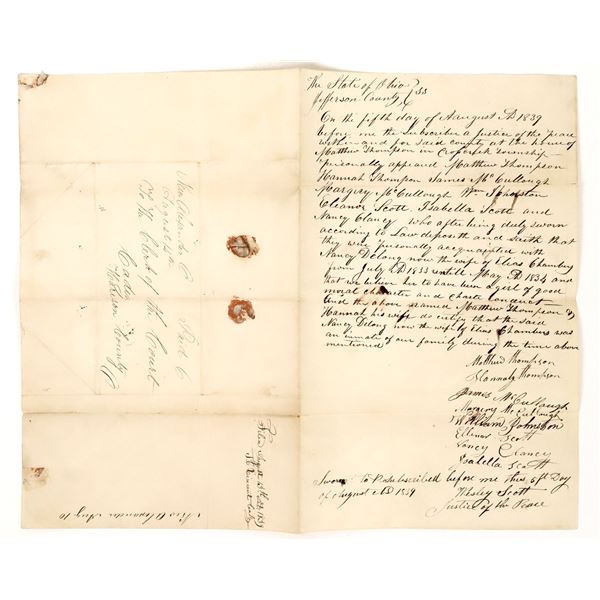 The State of Ohio
Jefferson County } SS
On the fifth day of August AD 1839
before me the Subscriber a Justice of the peace
within and for said county at the house of
Matthew Thompson in township
personally appeard Matthew Thompson
Hannah Thompson James McCullough
Margery McCullough Wm Johnston
Eleanor Scott Isabella Scott and
Nancy Clancy who after being duly sworn
according to Law deposeth and saith that
they were personally acquainted with
Nancy Delong now the wife of Elias Chambers
from July AD 1833 untill May AD 1834 and
that we believe her to have been a girl of good
moral character and chaste conduct
And the above named Matthew Thompson &
Hannah his wife do certify that the said
Nancy Delong now the wife of Elias Chambers was
an inmate of our family during the time above
mentioned
Matthew Thompson
Hannah Thompson
James McCullough
Margery McCullough
William Johnston
Ellenor Scott
Nancy Clancy
Isabella Scott
Sworn to & subscribed before me this 5th Day
of August AD 1839
Wesley Scott
Justice of the Peace
Paid 6
To the Clerk of the Court
Cadiz
County
Alexander Aug 10